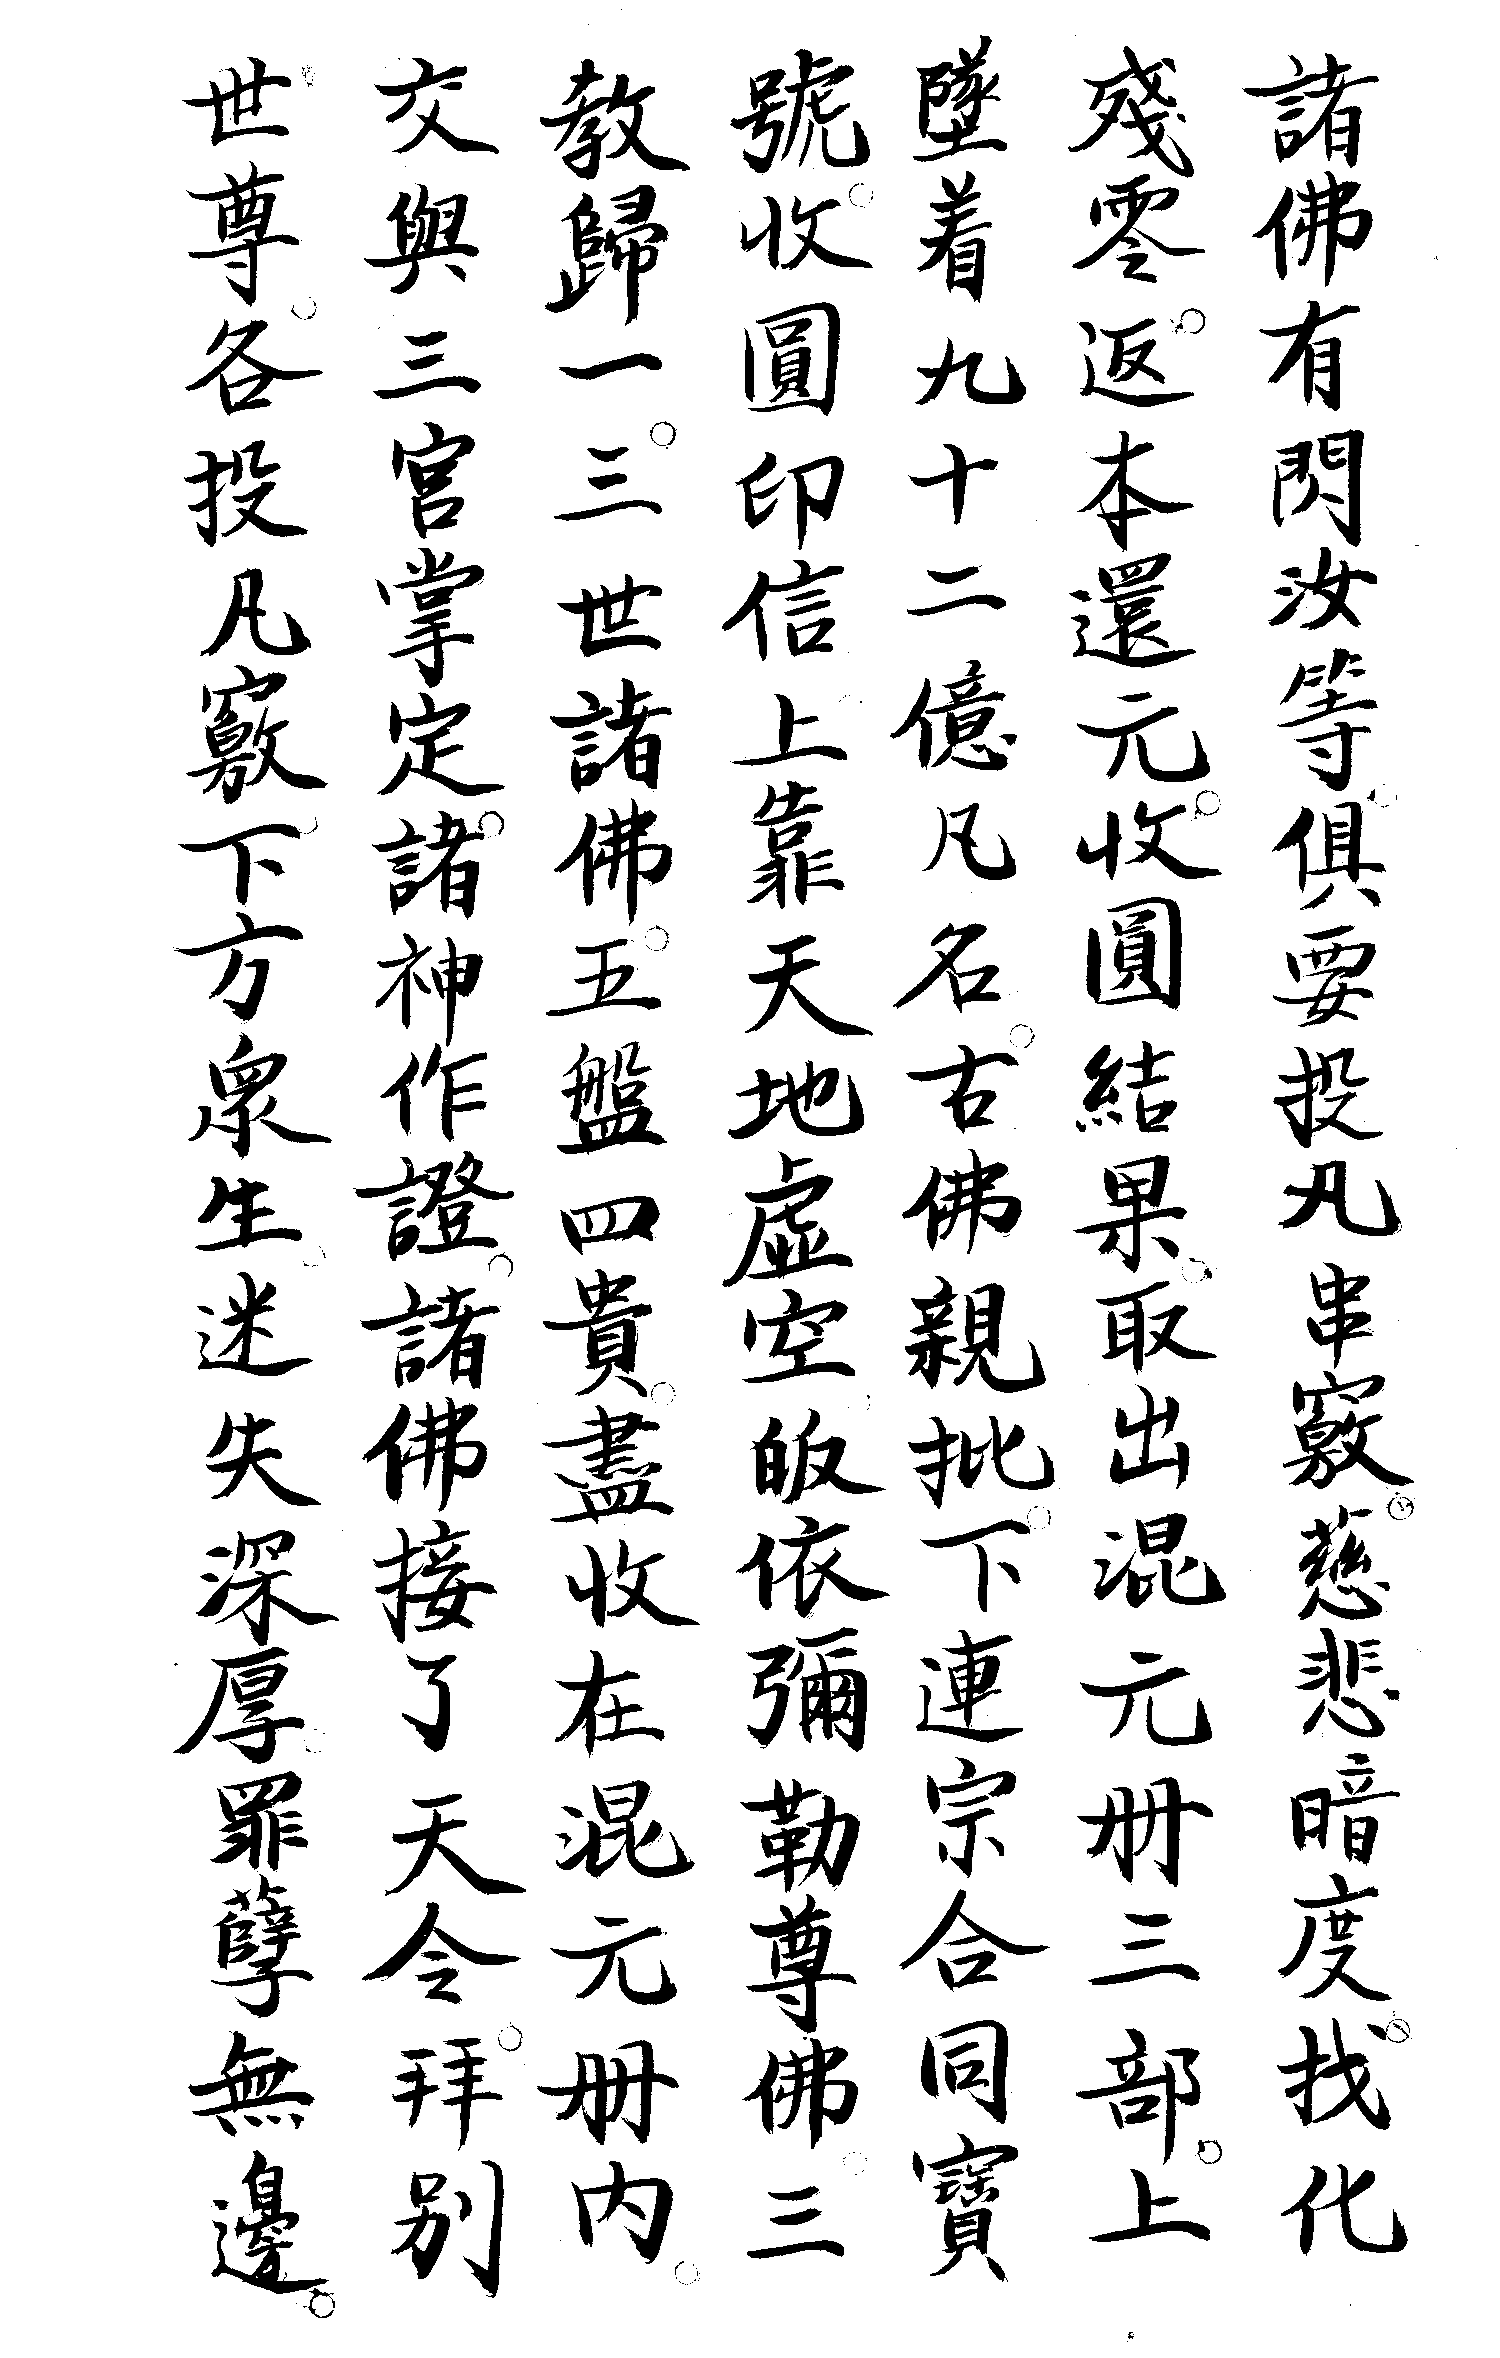 諸佛有閃汝等俱要投凡串竅慈悲暗度找化
殘零返本還元收圓結果取出混元册三部上
墜着九十二億凡名古佛親批下連宗合同寶
號收圓印信上靠天地虛空皈依彌勒尊佛三
教歸一三世諸佛五盤四貴盡收在混元册内
交與三官掌定諸神作證諸佛接了天令拜别
世尊各投凡竅下方衆生迷失深厚罪孽無邊